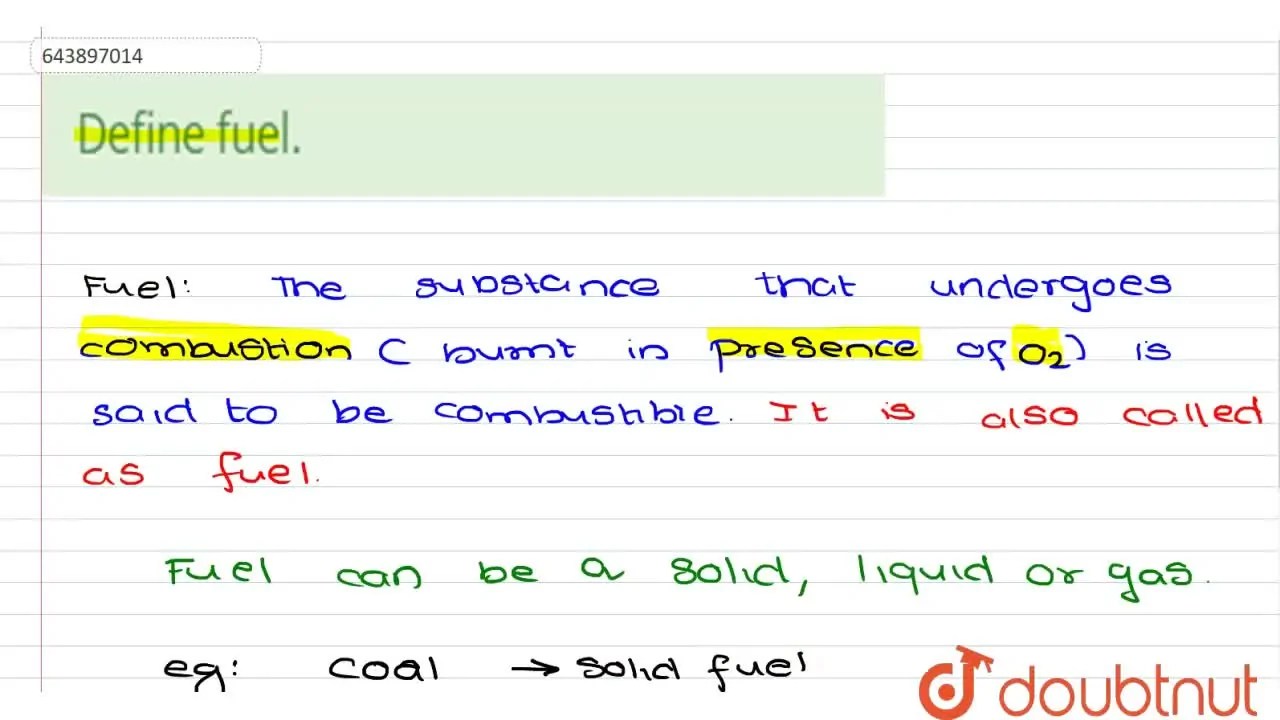 643897014
Define fuel.
Fuel: The substance that undergoes
combustion ( burnt in presence of O₂) is
said to be combustible. It is also called
as fuel.
Fuel can be a solid, liquid or gas.
eg: coal → solid fuel
doubtnut